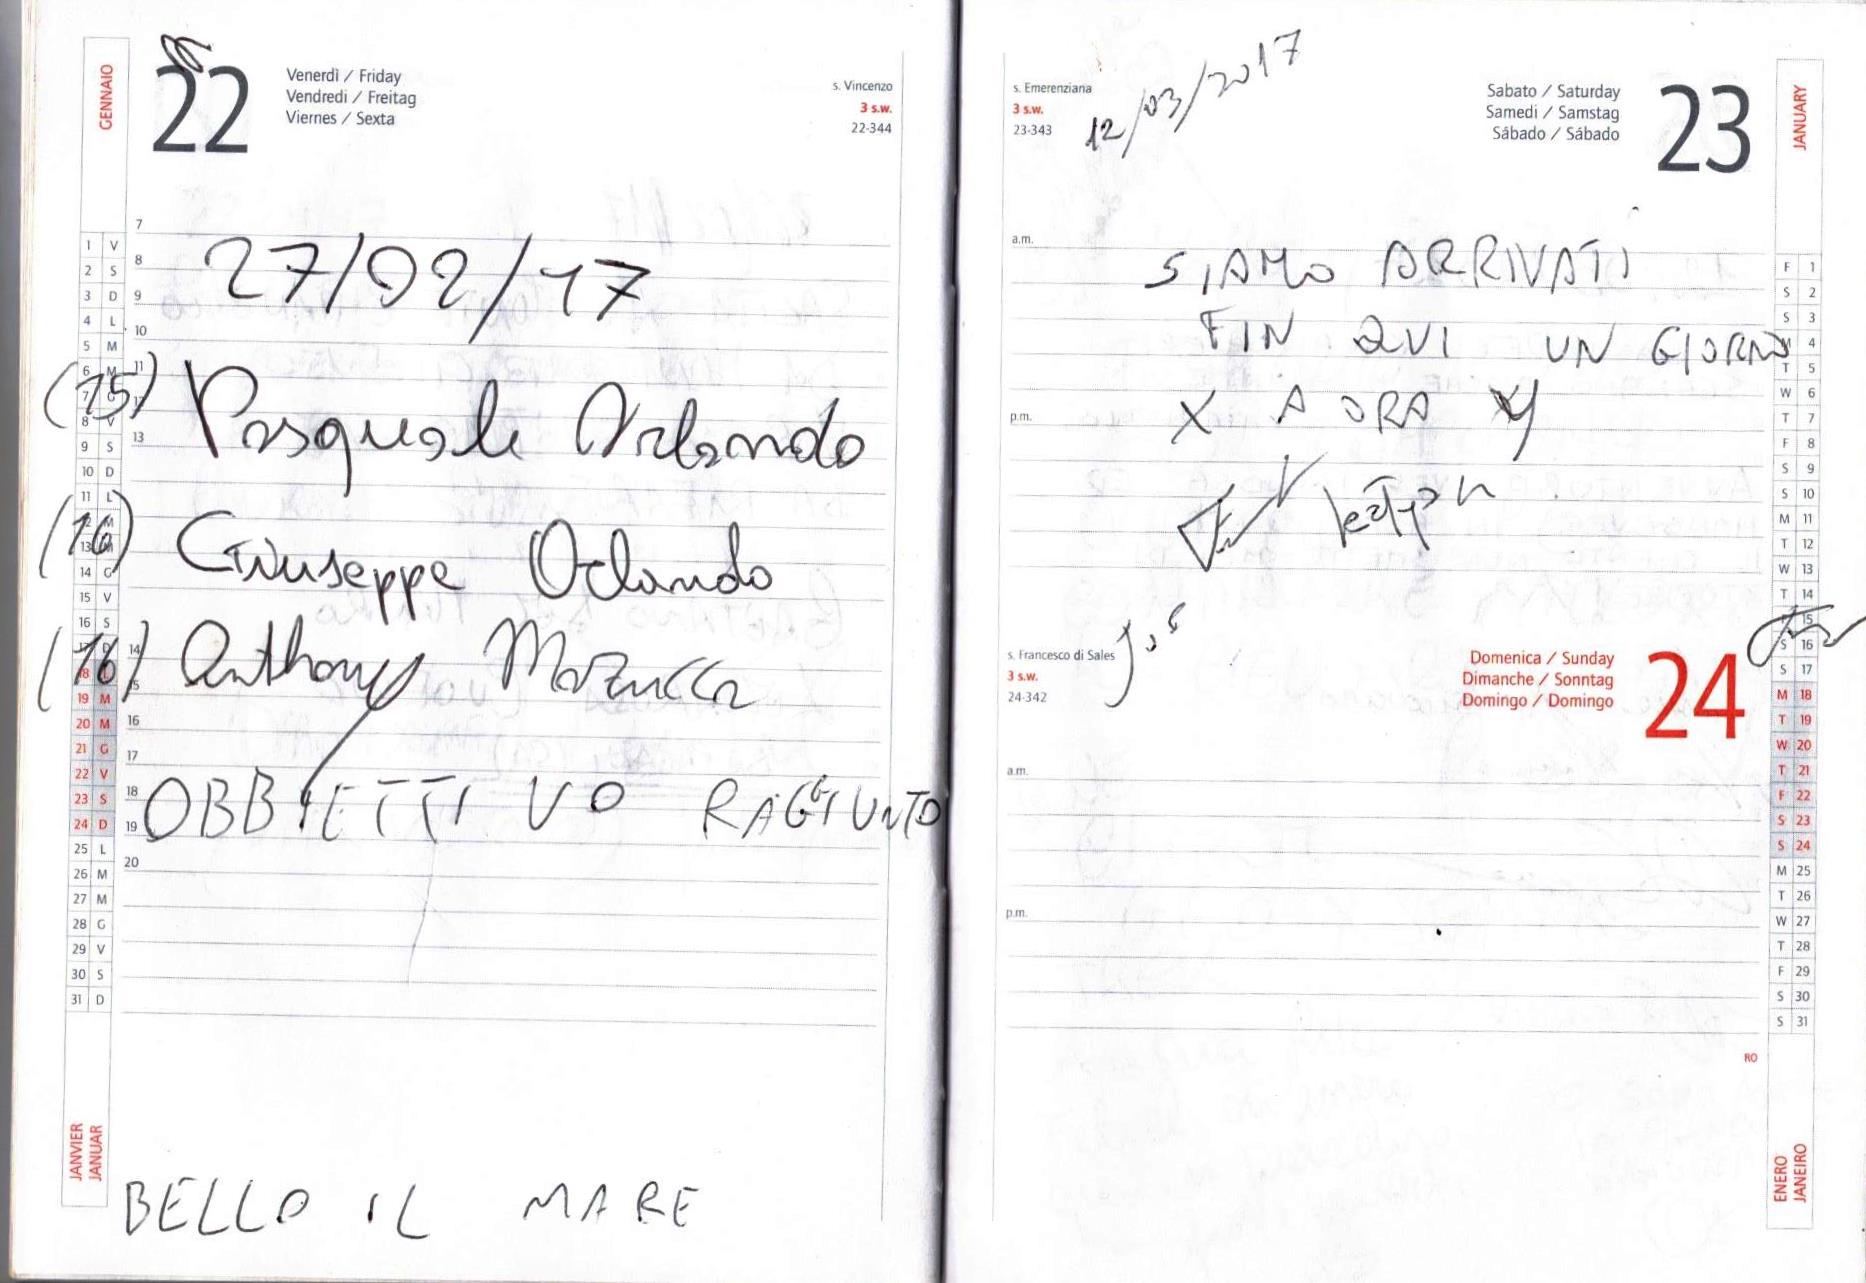 GENNAIO
22
Venerdì / Friday
Vendredi / Freitag
Viernes / Sexta
s. Vincenzo
3 s.w.
22-344
7
8
9
10
11
12
13
14
15
16
17
18
19
20
27/02/17
(15) Pasquale Orlando
(16) Giuseppe Orlando
(16) Anthony Mazzucca
OBBIETTIVO RAGGIUNTO
BELLO IL MARE
1 V
2 S
3 D
4 L
5 M
6 M
7 G
8 V
9 S
10 D
11 L
12 M
13 M
14 G
15 V
16 S
17 D
18 L
19 M
20 M
21 G
22 V
23 S
24 D
25 L
26 M
27 M
28 G
29 V
30 S
31 D
JANVIER
JANUAR
s. Emerenziana
3 s.w.
23-343
12/03/2017
Sabato / Saturday
Samedi / Samstag
Sábado / Sábado
23
JANUARY
a.m.
SIAMO ARRIVATI
FIN QUI UN GIORNO
p.m.
X A ORA
s. Francesco di Sales
3 s.w.
24-342
Domenica / Sunday
Dimanche / Sonntag
Domingo / Domingo
24
a.m.
p.m.
F 1
S 2
S 3
M 4
T 5
W 6
T 7
F 8
S 9
S 10
M 11
T 12
W 13
T 14
F 15
S 16
S 17
M 18
T 19
W 20
T 21
F 22
S 23
S 24
M 25
T 26
W 27
T 28
F 29
S 30
S 31
RO
ENERO
JANEIRO